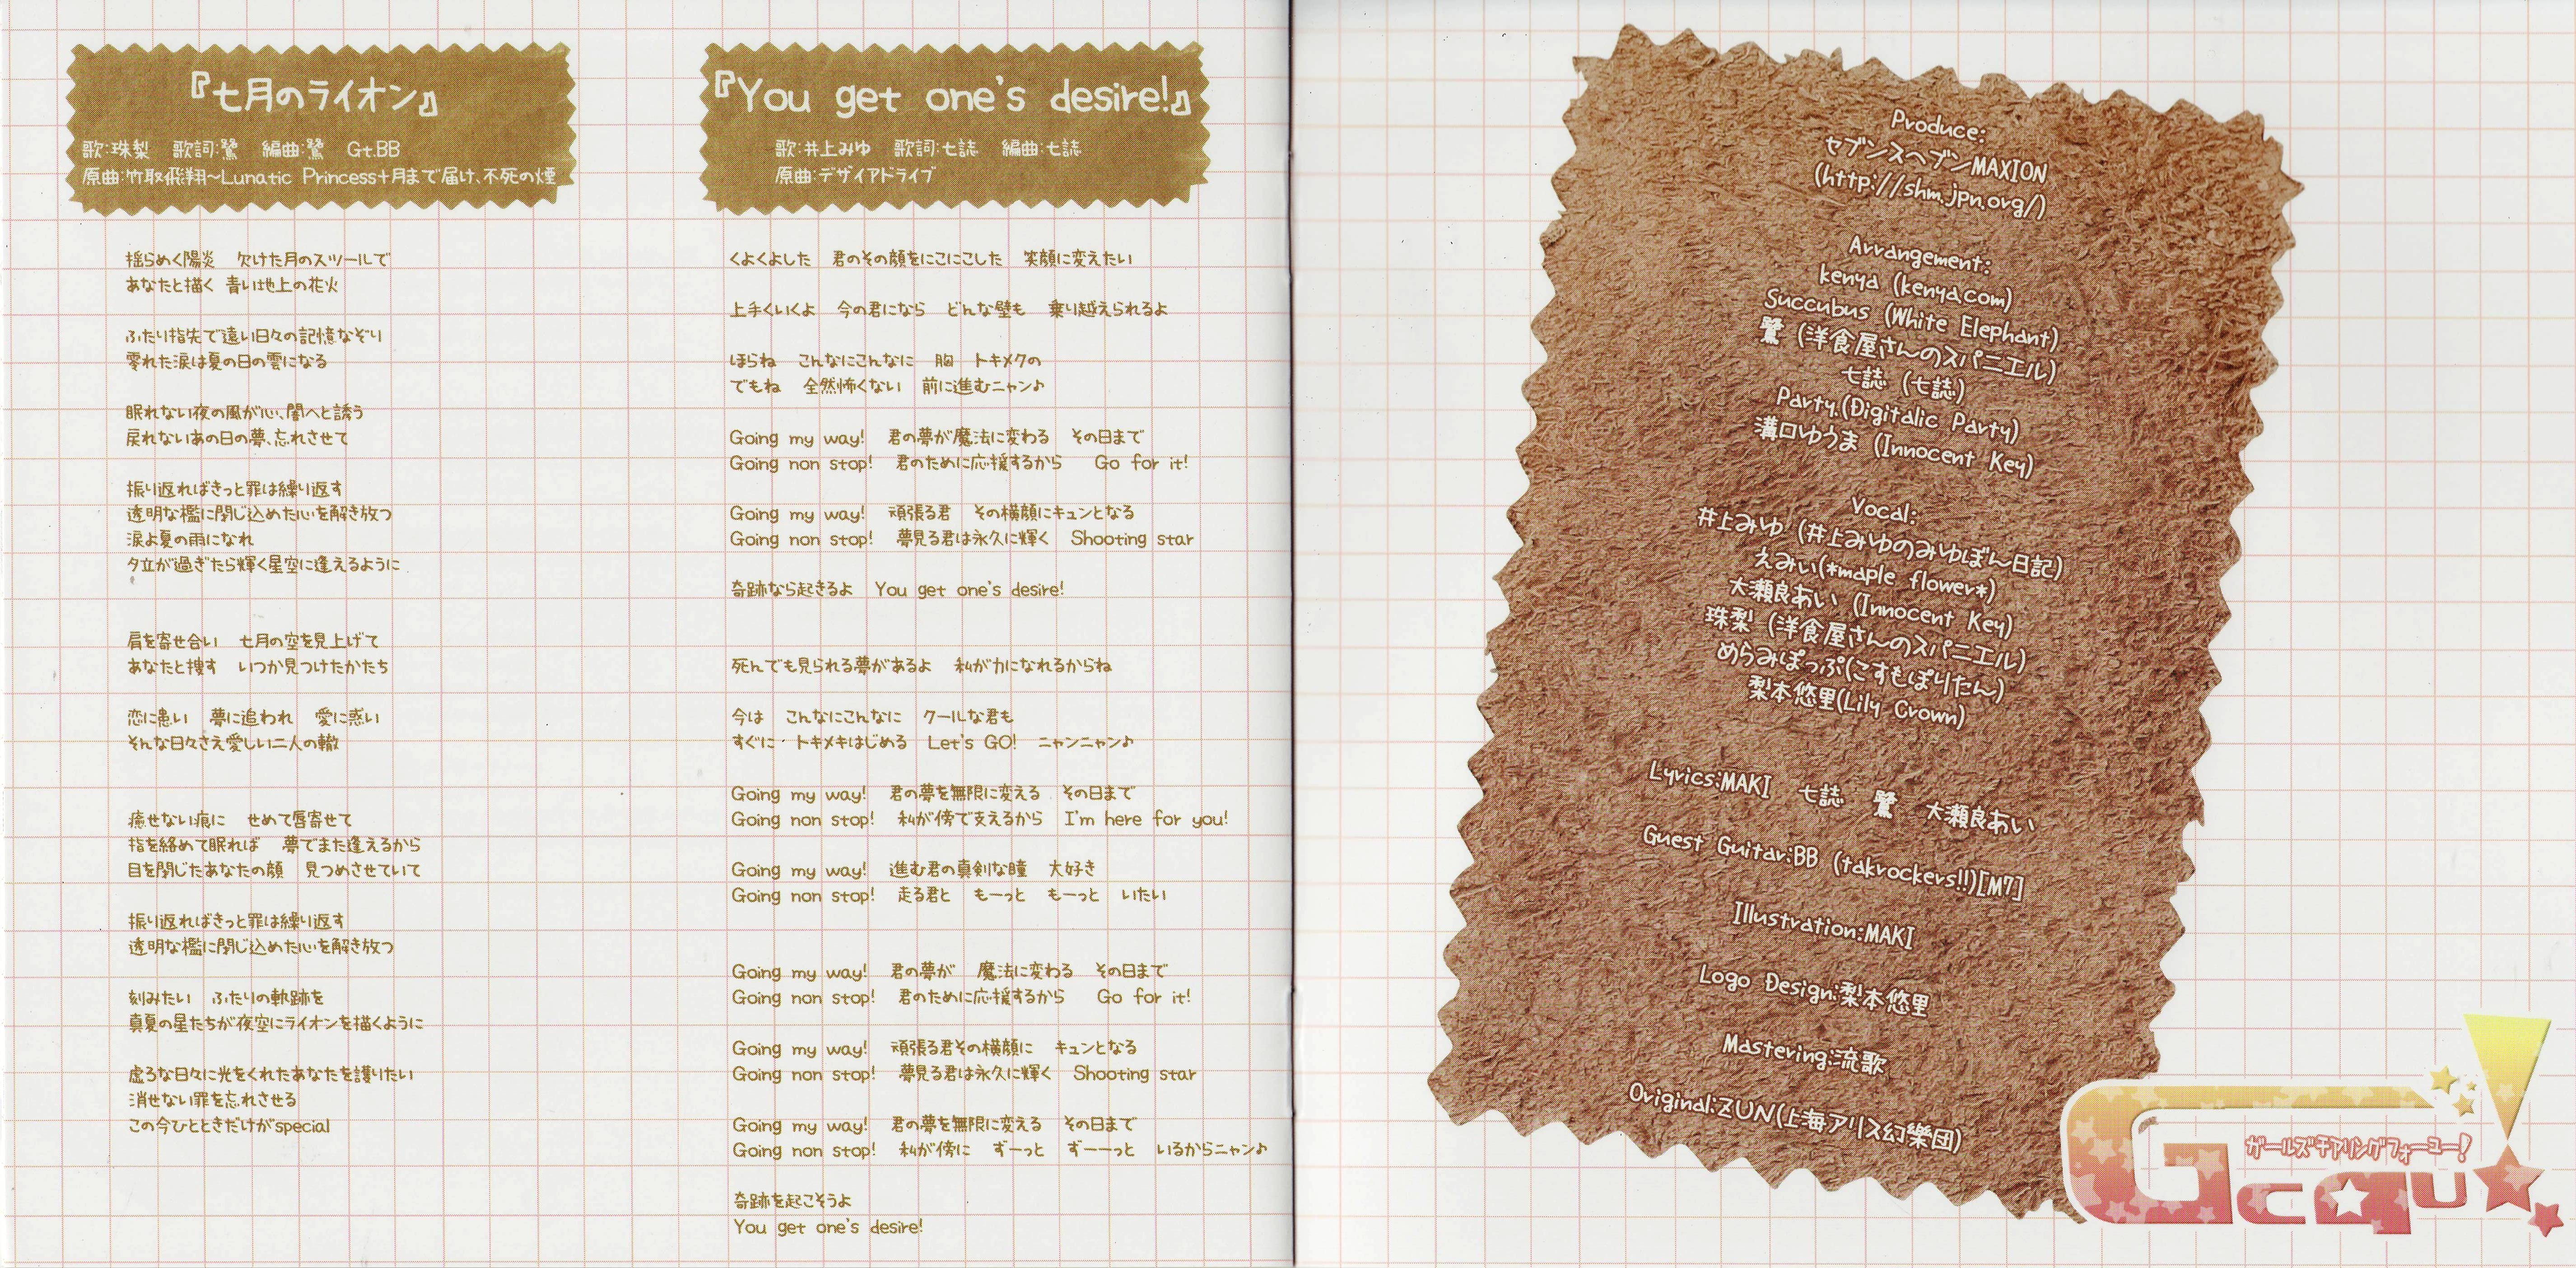 『七月のライオン』
歌:珠梨　歌詞:鷺　編曲:鷺　Gt.BB
原曲:竹取飛翔～Lunatic Princess+月まで届け、不死の煙
揺らめく陽炎　欠けた月のスツールで
あなたと描く 青い地上の花火
ふたり指先で遠い日々の記憶なぞり
零れた涙は夏の日の雲になる
眠れない夜の風が心、闇へと誘う
戻れないあの日の夢、忘れさせて
振り返ればきっと罪は繰り返す
透明な檻に閉じ込めた心を解き放つ
涙よ夏の雨になれ
夕立が過ぎたら輝く星空に逢えるように
肩を寄せ合い　七月の空を見上げて
あなたと捜す　いつか見つけたかたち
恋に患い　夢に追われ　愛に惑い
そんな日々さえ愛しい二人の轍
癒せない痕に　せめて唇寄せて
指を絡めて眠れば　夢でまた逢えるから
目を閉じたあなたの顔　見つめさせていて
振り返ればきっと罪は繰り返す
透明な檻に閉じ込めた心を解き放つ
刻みたい　ふたりの軌跡を
真夏の星たちが夜空にライオンを描くように
虚ろな日々に光をくれたあなたを護りたい
消せない罪を忘れさせる
この今ひとときだけがspecial
『You get one's desire!』
歌:井上みゆ　歌詞:七誌　編曲:七誌
原曲:デザイアドライブ
くよくよした　君のその顔をにこにこした　笑顔に変えたい
上手くいくよ　今の君になら　どんな壁も　乗り越えられるよ
ほらね　こんなにこんなに　胸　トキメクの
でもね　全然怖くない　前に進むニャン♪
Going my way!　君の夢が魔法に変わる　その日まで
Going non stop!　君のために応援するから　Go for it!
Going my way!　頑張る君　その横顔にキュンとなる
Going non stop!　夢見る君は永久に輝く　Shooting star
奇跡なら起きるよ　You get one's desire!
死んでも見られる夢があるよ　私が力になれるからね
今は　こんなにこんなに　クールな君も
すぐに　トキメキはじめる　Let's GO!　ニャンニャン♪
Going my way!　君の夢を無限に変える　その日まで
Going non stop!　私が傍で支えるから　I'm here for you!
Going my way!　進む君の真剣な瞳　大好き
Going non stop!　走る君と　もーっと　もーっと　いたい
Going my way!　君の夢が　魔法に変わる　その日まで
Going non stop!　君のために応援するから　Go for it!
Going my way!　頑張る君その横顔に　キュンとなる
Going non stop!　夢見る君は永久に輝く　Shooting star
Going my way!　君の夢を無限に変える　その日まで
Going non stop!　私が傍に　ずーっと　ずーーっと　いるからニャン♪
奇跡を起こそうよ
You get one's desire!
Produce:
セブンスヘブンMAXION
(http://shm.jpn.org/)
Arrangement:
kenya (kenya.com)
Succubus (White Elephant)
鷺 (洋食屋さんのスパニエル)
七誌 (七誌)
Party.(Digitalic Party)
溝口ゆうま (Innocent Key)
Vocal:
井上みゆ (井上みゆのみゆぽん日記)
えみぃ(*maple flower*)
大瀬良あい (Innocent Key)
珠梨 (洋食屋さんのスパニエル)
めらみぽっぷ(こすもぽりたん)
梨本悠里(Lily Crown)
Lyrics:MAKI　七誌　鷺　大瀬良あい
Guest Guitar:BB (takrockers!!)[M7]
Illustration:MAKI
Logo Design:梨本悠里
Mastering:流歌
Original:ZUN(上海アリス幻樂団)
ガールズチアリングフォーユー!
Gcqu!